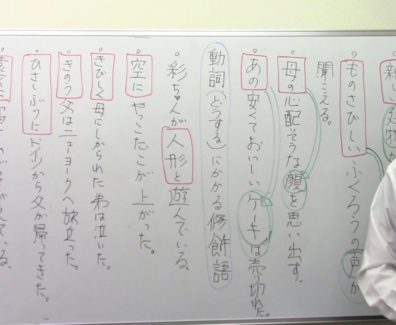 ものさびしいふくろうの声が
聞こえる。
母の心配そうな顔を思い出す。
あの安くておいしいケーキは売り切れた。
動詞(どうする)にかかる修飾語
彩ちゃんが人形と遊んでいる。
空にやっこだこが上がった。
きびしく母にしかられた弟は泣いた。
きのう父はニューヨークへ旅立った。
ひさしぶりにドイツから父が帰ってきた。